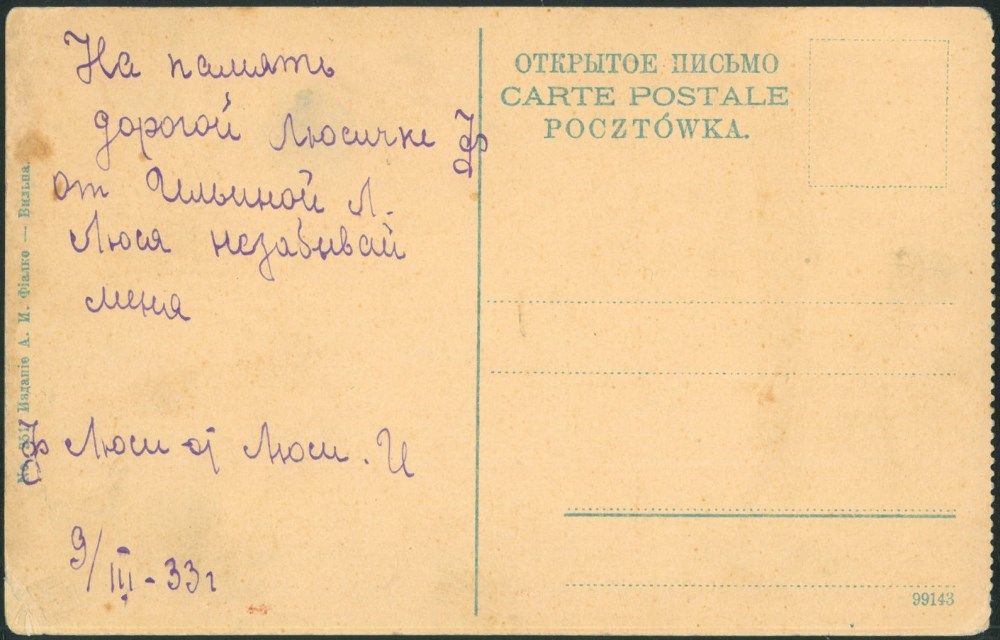 На память
дорогой Люсичке
от Ильиной Л.
Люся незабывай
меня
Люси от Люси. И
9/III - 33 г
ОТКРЫТОЕ ПИСЬМО
CARTE POSTALE
POCZTÓWKA.
Изданіе А. И. Фіалко — Вильна.
99143